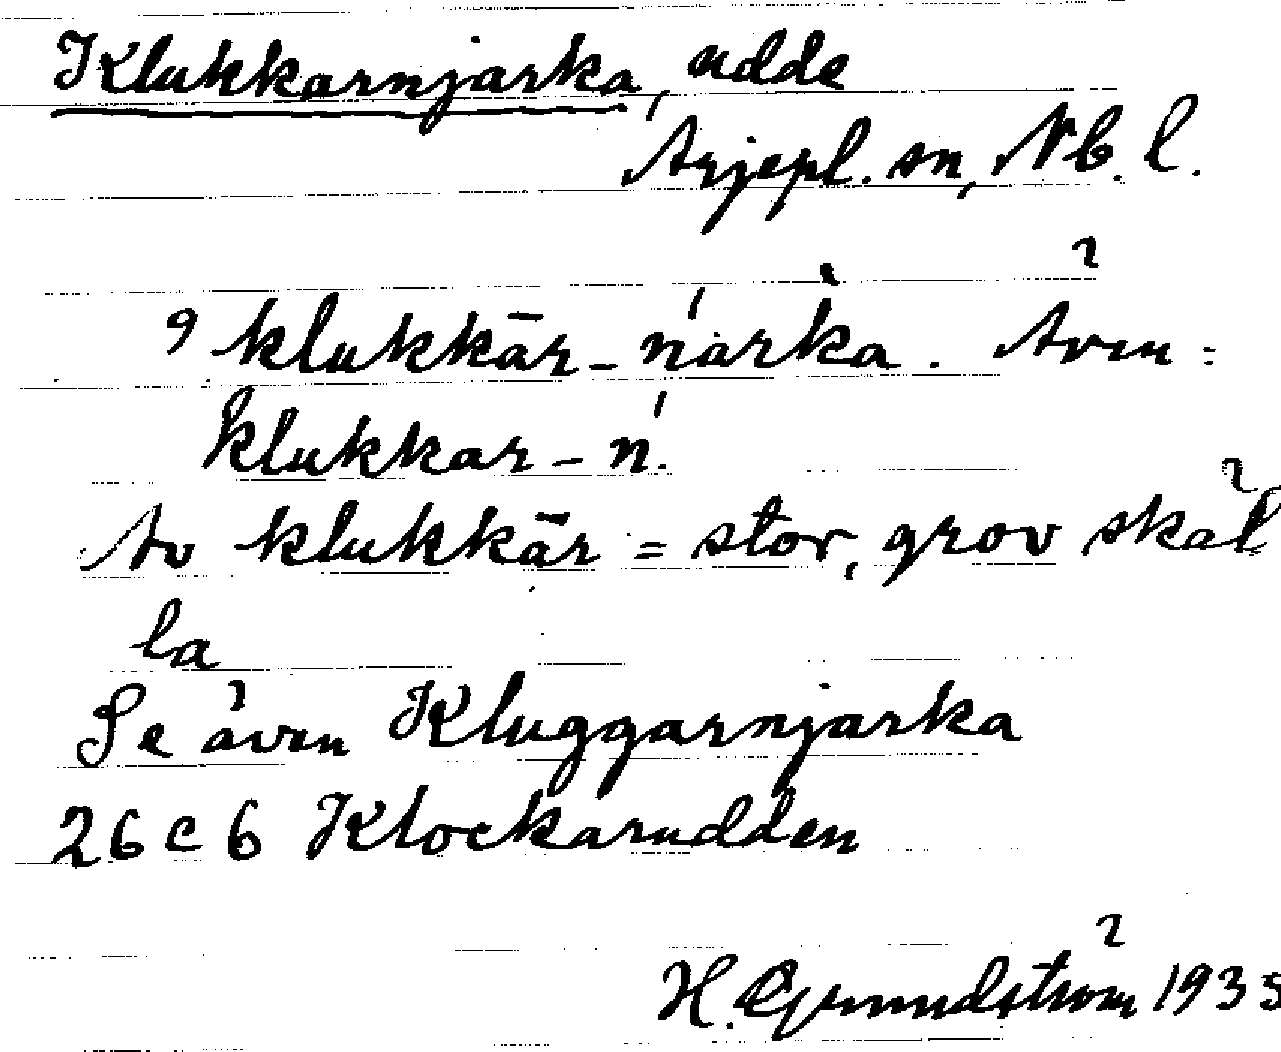 Klukkarnjarka, udde
Arjepl. sn, Nb. l.
klukkār-ńarka. Även:
klukkar-ń.
Av klukkār = stor, grov skål
la
Se även Kluggarnjarka
26 c 6 Klockarudden
H. Grundström 1935